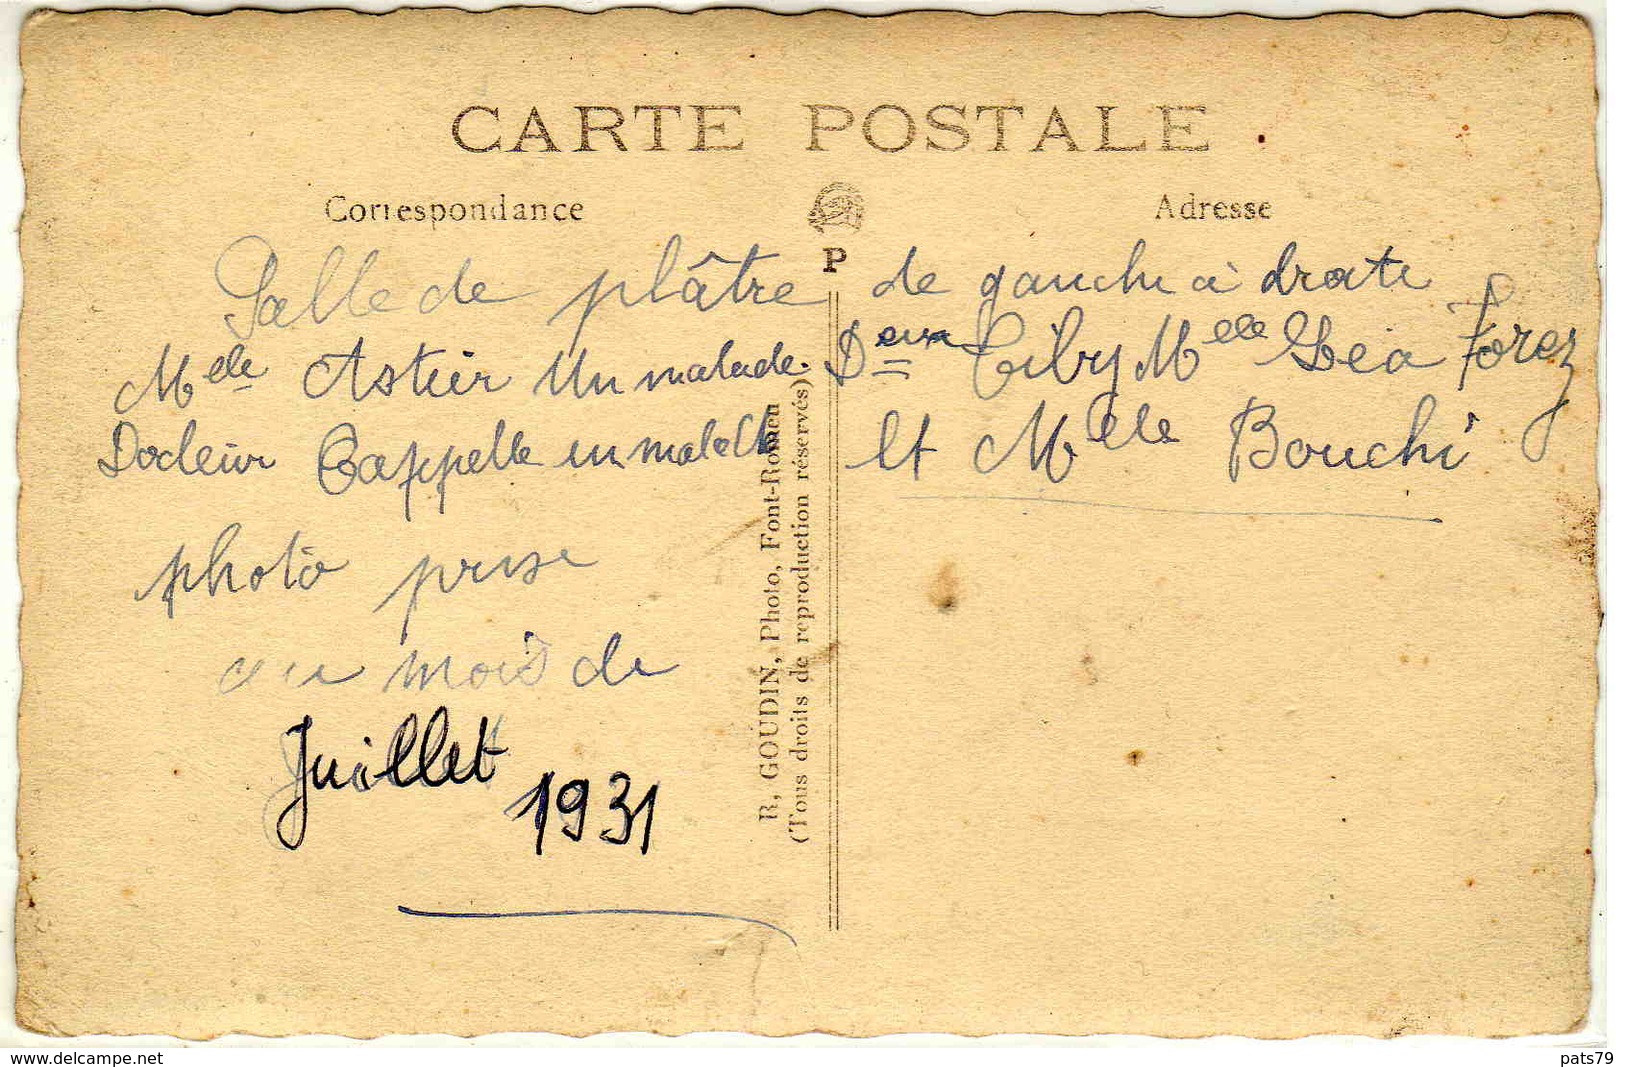 CARTE POSTALE
Correspondance
Adresse
P
Salle de plâtre de gauche à droite
Melle Astier Un malade. Melle Forez
Docteur Cappelle un malade et Melle Bouchi
photo prise
au mois de
Juillet
1931
R. GOUDIN, Photo, Font-Romeu
(Tous droits de reproduction réservés)
www.delcampe.net
pats79